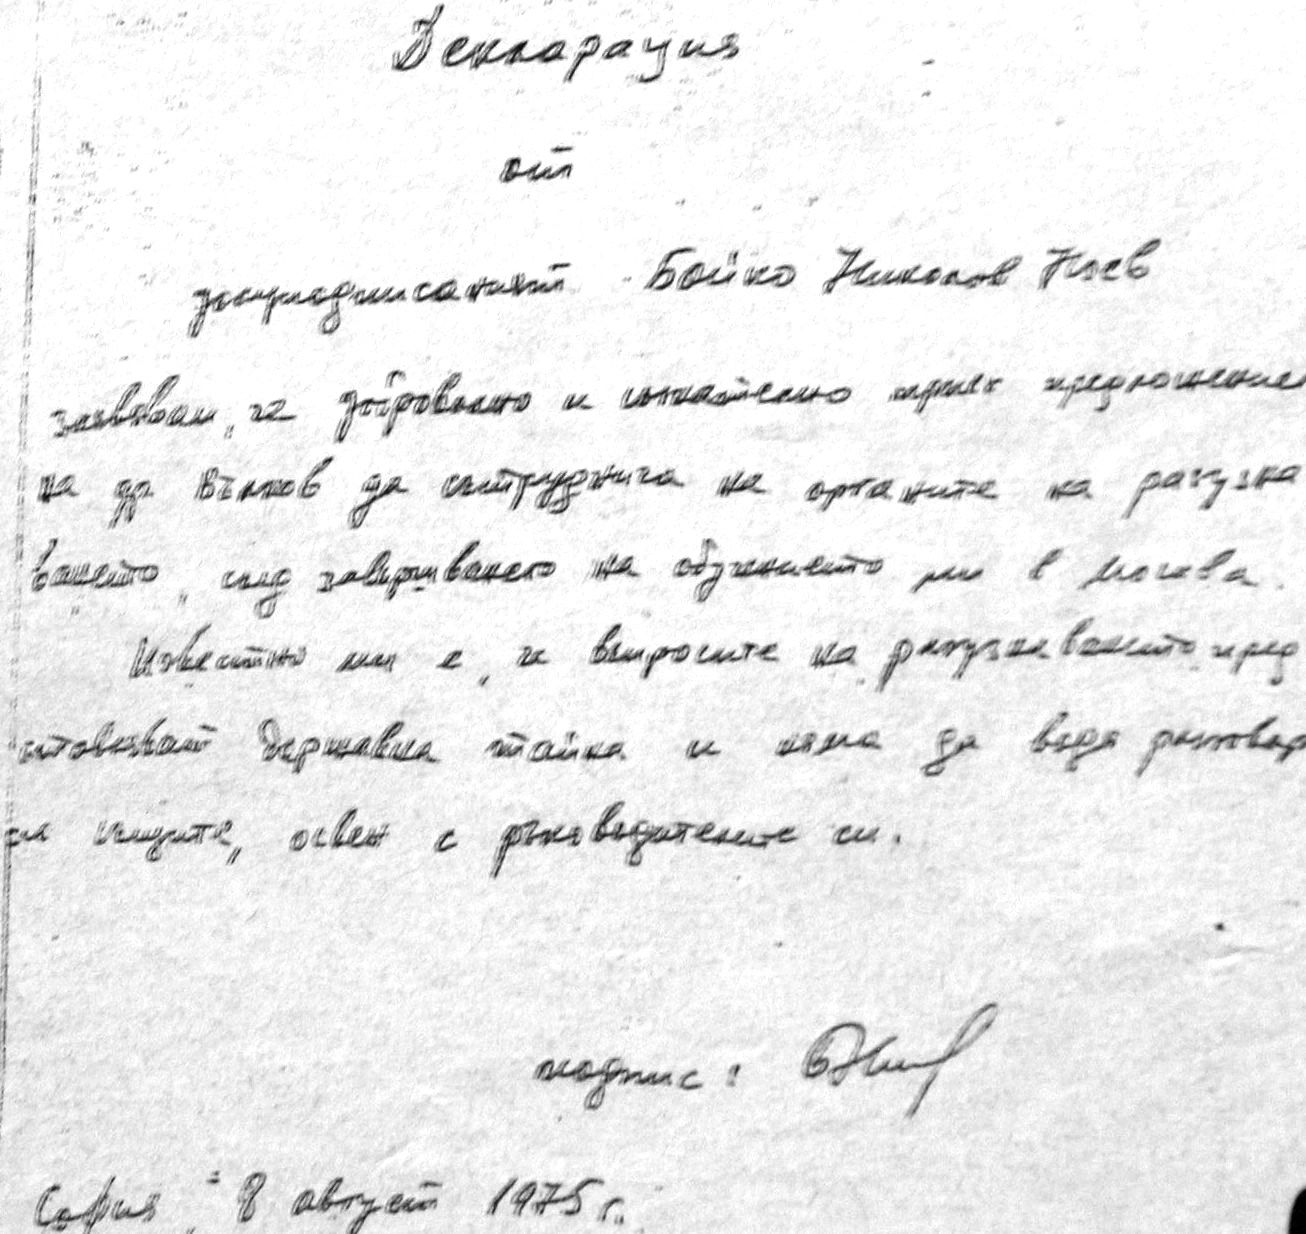 Декларация
от
долуподписаният Бойко Николов Ноев
заявявам, че доброволно и съзнателно приех предложението
на др Вълков да сътруднича на органите на разузна
ването, след завършването на обучението ми в Москва.
Известно ми е, че въпросите на разузнаването пред
ставляват държавна тайна и няма да водя разговор
същите, освен с ръководителите си.
подпис:
София, 8 август 1975 г.